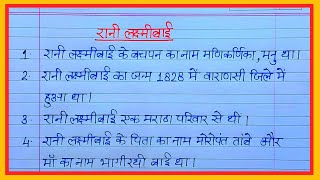 रानी लक्ष्मीबाई
1. रानी लक्ष्मीबाई के बचपन का नाम मणिकर्णिका, मनु था।
2. रानी लक्ष्मीबाई का जन्म 1828 में वाराणसी जिले में
हुआ था।
3. रानी लक्ष्मीबाई एक मराठा परिवार से थी।
4. रानी लक्ष्मीबाई के पिता का नाम मोरोपंत तांबे और
माँ का नाम भागीरथी बाई था।